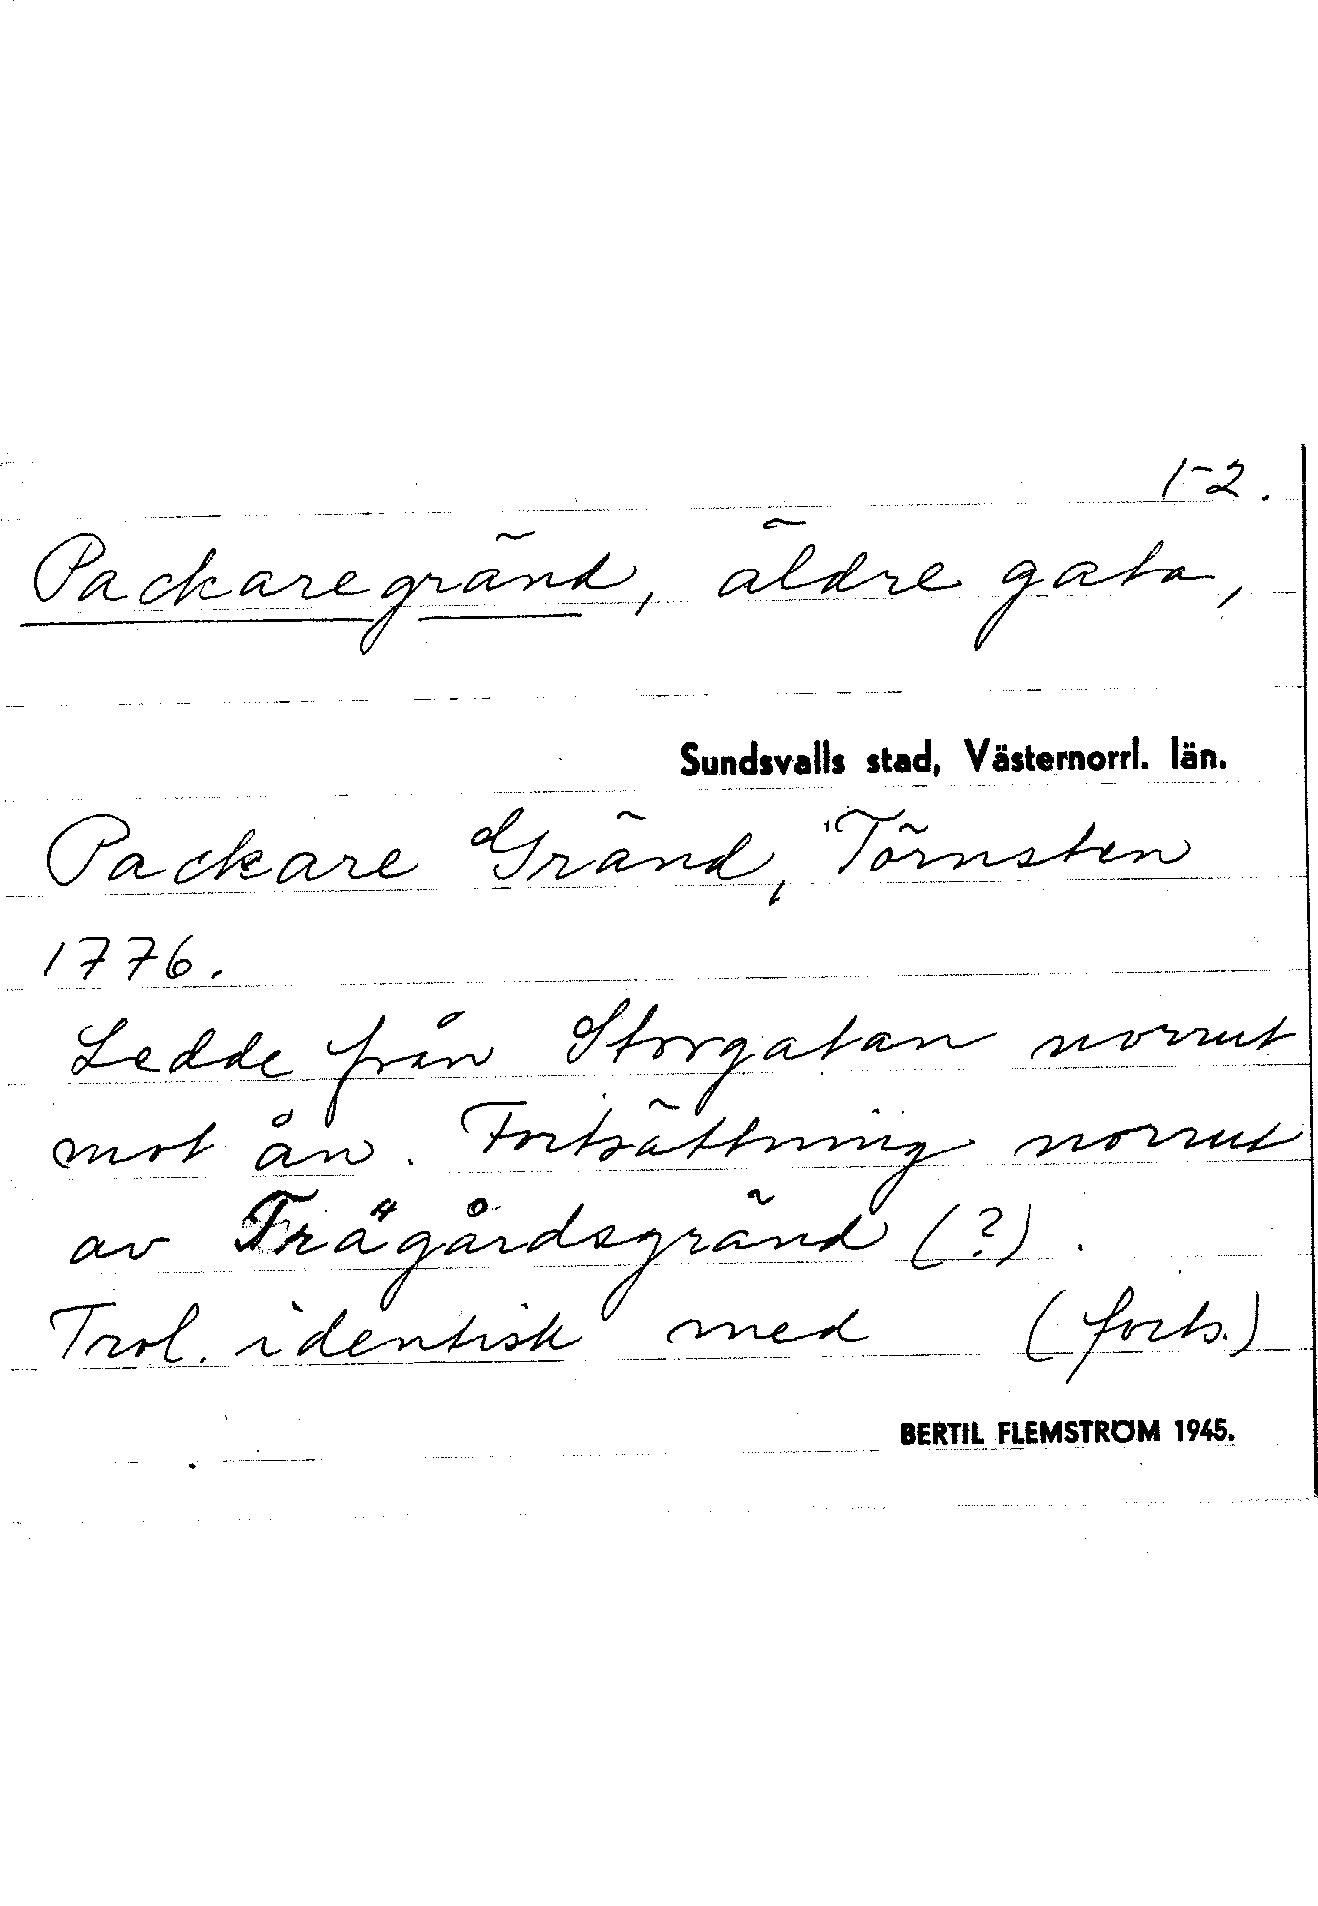 1-2.
Packaregränd, äldre gata,
Sundsvalls stad, Västernorrl. län.
Packare Gränd, Törnsten
1776.
Ledde från Storgatan norrut
mot ån. Fortsättning norrut
av Trägårdsgränd (?).
Trol. identisk med (forts.)
BERTIL FLEMSTRÖM 1945.